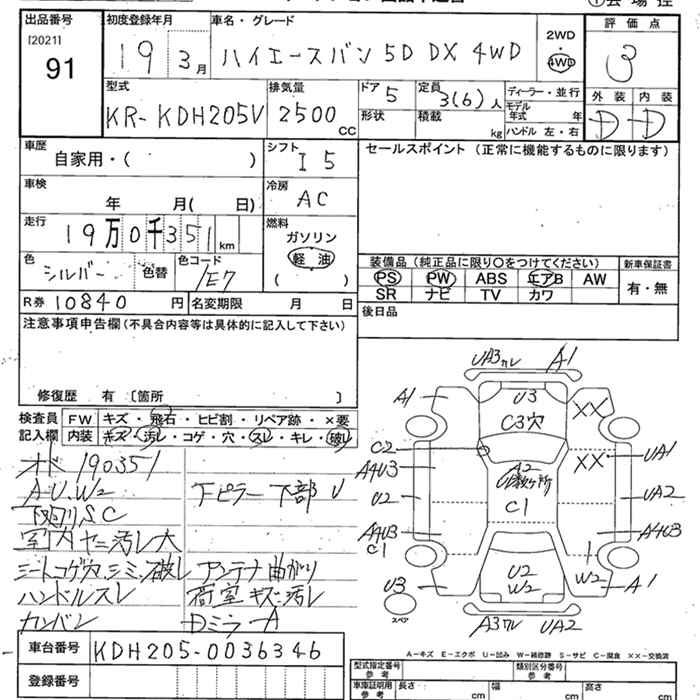 出品番号
[2021]
91
初度登録年月
19 3月
車名・グレード
ハイエースバン 5D DX 4WD
2WD
・
4WD
評価点
3
外装 内装
D D
型式
KR-KDH205V
排気量
2500 CC
ドア 5
形状
定員 3(6)人
積載 kg
ディーラー・並行
モデル年式 年
ハンドル 左・右
車歴
自家用・( )
シフト I5
車検
年 月( 日)
冷房 AC
走行
19万0千351km
燃料
ガソリン
軽油
( )
色
シルバー 色替
色コード
1E7
R券 10840 円
名変期限 月 日
セールスポイント (正常に機能するものに限ります)
装備品 (純正品に限り○をつけてください)
PS PW ABS エアB AW
SR ナビ TV カワ
新車保証書
有・無
後日品
注意事項申告欄(不具合内容等は具体的に記入して下さい)
修復歴 有 〔箇所 〕
検査員記入欄
FW キズ・飛石・ヒビ割・リペア跡・×要
内装 キズ・汚レ・コゲ・穴・スレ・キレ・破レ
オド 190351
A.U.W2
下回りS.C
室内ヤニ汚レ大
シートコゲ穴.シミ.破レ
ハンドルスレ
カンバン
下ピラー下部U
アンテナ曲がり
荷室キズ汚レ
DミラーA
UA3カレ A1
A1 U3 XX
C3穴
C2 XX UA1
A4U3 A2
U数ヶ所
U2 C1 UA2
A4U3 A4U3
C1
U3 U2 W2 W2 A1
スペア
A3カレ UA2
A−キズ E−エクボ U−凹み W−補修跡 S−サビ C−腐食 ××−交換済
車台番号 KDH205-0036346
登録番号
型式指定番号 参考
類別区分番号 参考
車庫証明用 参考
長さ cm 幅 cm 高さ cm